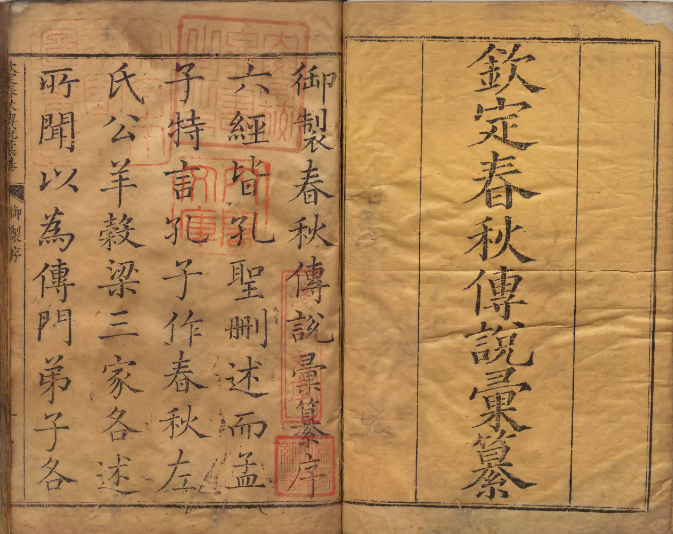 欽定春秋傳說彙纂
御製春秋傳說彙纂序
六經皆孔聖刪述而孟
子特言孔子作春秋左
氏公羊穀梁三家各述
所聞以為傳門弟子各
御製序